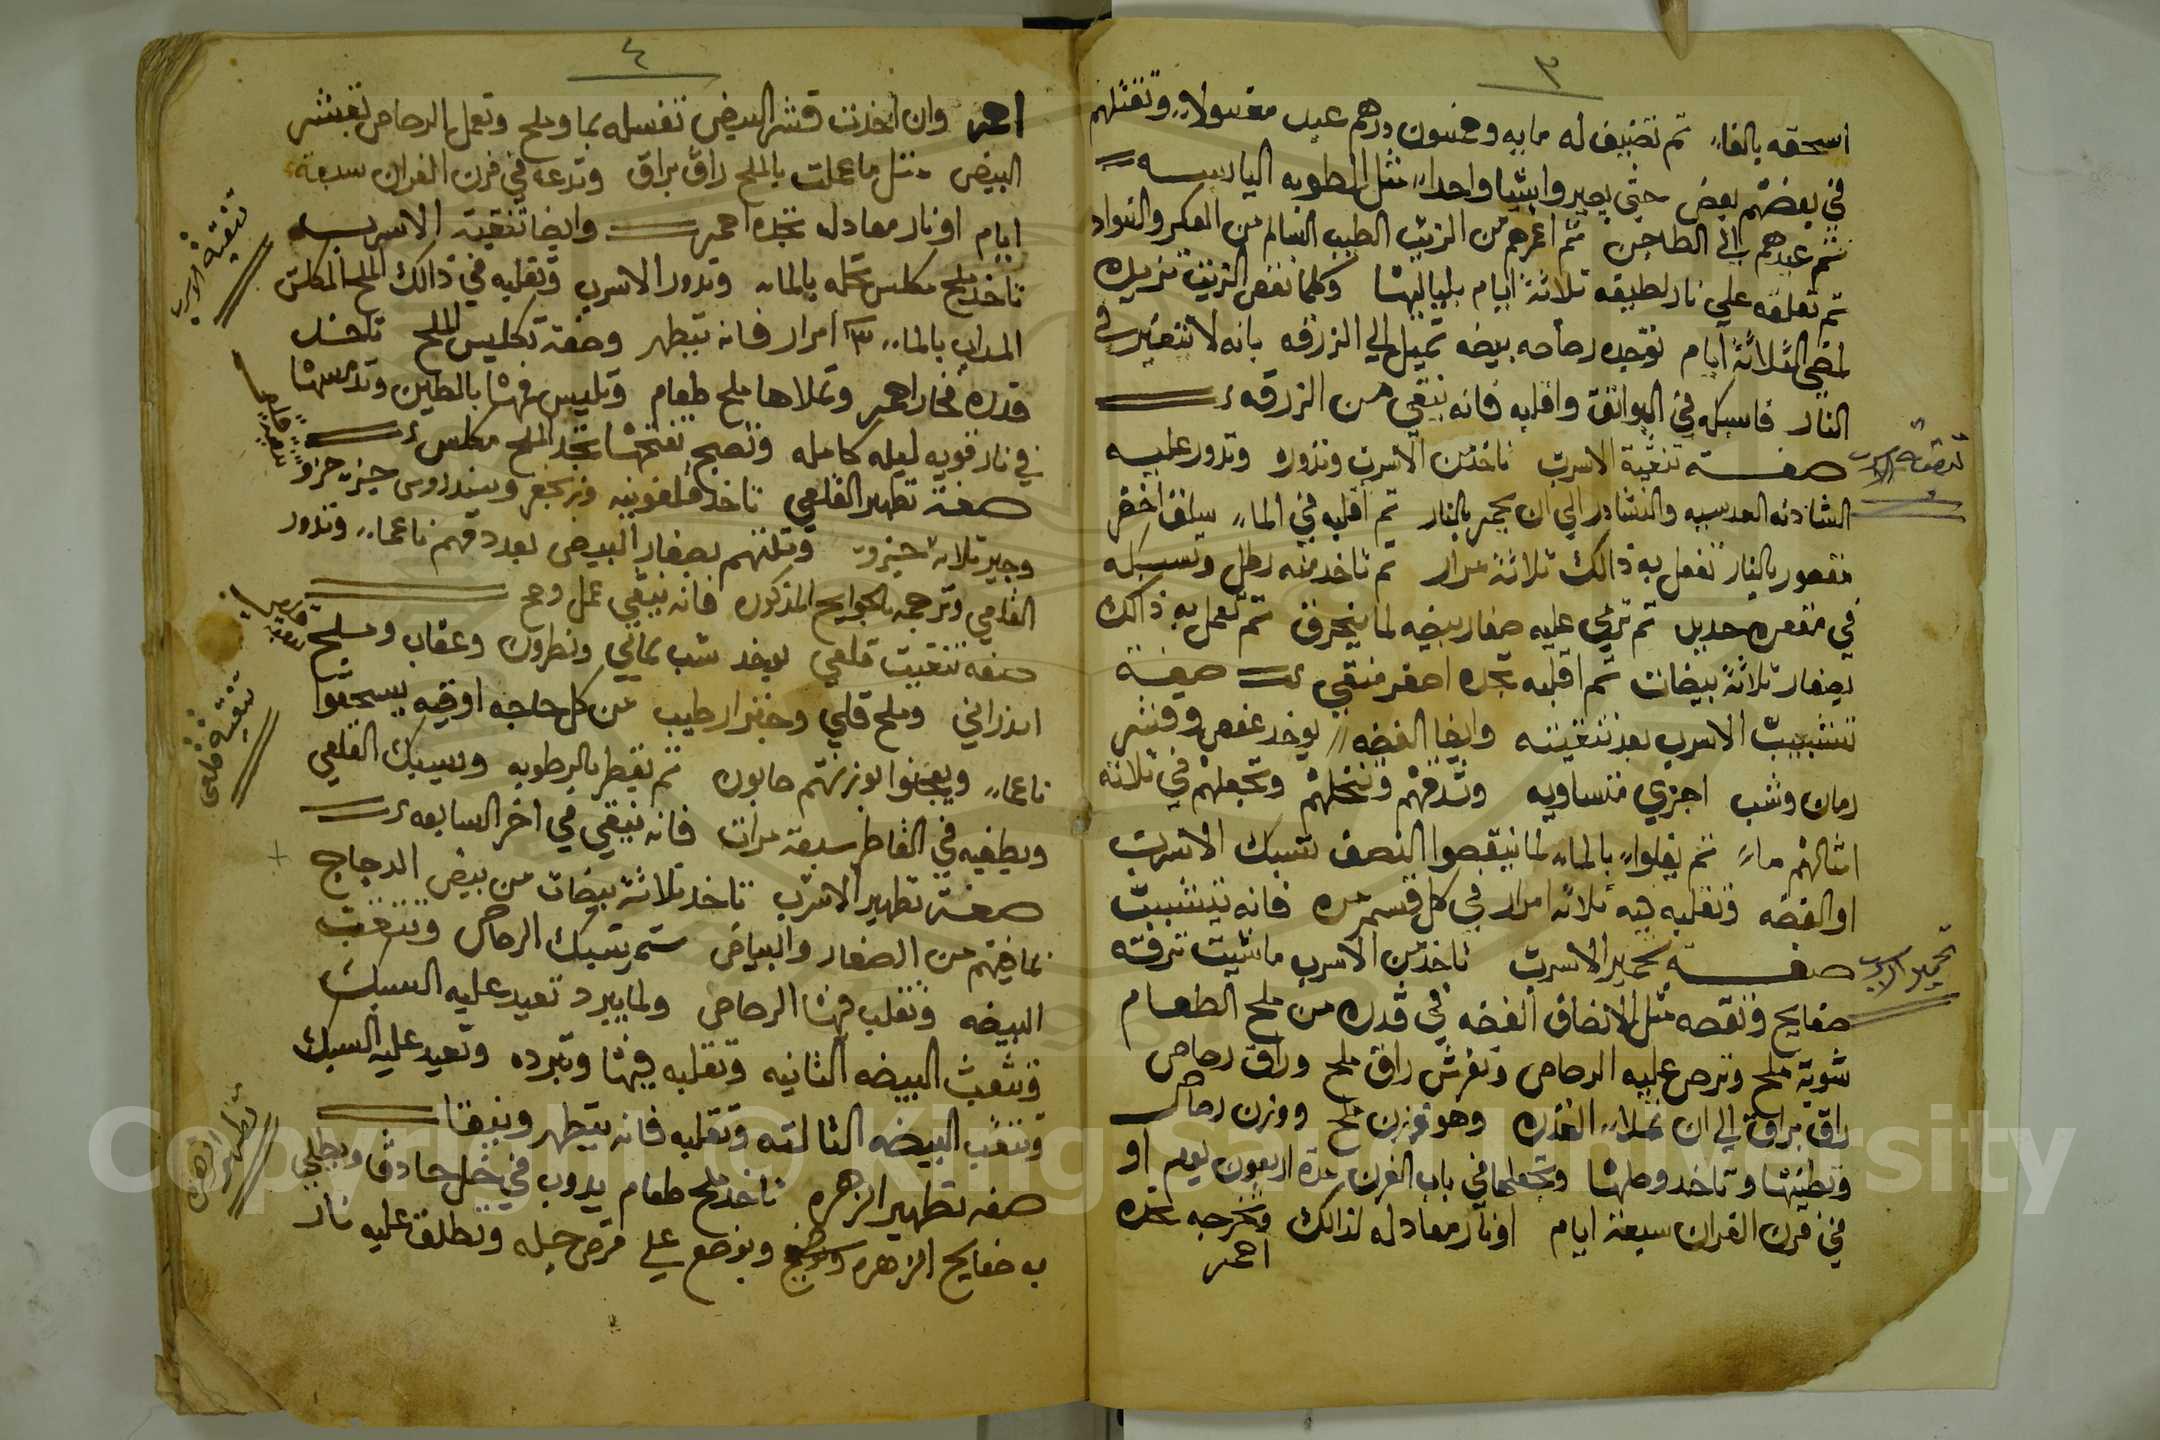 ٣
اسحقه بالغاء ثم تضيف له مايه وخمسون درهم عبد مغسولا وتقتلهم
في بعضهم بعض حتى يصيروا شيا واحدا مثل الرطوبه اليابسه
ثم عبدهم الى الطاجن ثم اغمرهم من الزيت الطيب السالم من العكر والسواد
ثم تعلقه على نار لطيفه ثلاثة ايام بلياليها وكلما نقص الزيت تزيده
لمضى الثلاثة ايام توجده رصاصه بيضه تميل الى الزرقه بانه لا تتغير في
النار فاسبكه في البواتق واقلبه فانه ينقى من الزرقه
صفة تنقية الاسرب تاخذ من الاسرب وتذوره وتدور عليه
تنقية الاسرب
الشاذنه العدسيه والنشادر الى ان يحمر بالنار ثم اقلبه في الماء سلق اخضر
مقصور بالنار تفعل به ذالك ثلاثة مرار ثم تاخد منه رطل وتسبكه
في مقعره حديد ثم ترمي عليه صفار بيضه لما ينحرق ثم تعمل به ذالك
بصفار ثلاثة بيضات ثم اقلبه تجده اصفر منقي صفة
تشبيب الاسرب بعد تنقيته وايضا الفضه يوخد عفص وقشر
رمان وشب اجزي متساويه وتدقهم وتنخلهم وتجعلهم في ثلاثة
امثالهم ماء ثم يغلوا بالماء لما ينقصوا النصف تسبك الاسرب
او الفضه وتقلبه فيه ثلاثة امرار في كل قسم مره فانه يتشبب
صفة تحمير الاسرب تاخد من الاسرب ما شيت ترقه
تحمير الاسرب
صفايح وتقصه مثل الانصاف الفضه في قدره من ملح الطعام
شوية ملح وترص عليه الرصاص وتفرش راق ملح وراق رصاص
راق براق الى ان تملاء القدره وهو وزن ملح ووزن رصاص
وتطينها وتاخد وصلها وتجعلها في باب الفرن مدة اربعون يوم او
في فرن القزاز سبعة ايام او نار معادله لذالك وتخرجه تجده
احمر
٤
احمر وان اخذت قشر البيض تغسله بما وملح وتعمل الرصاص بقشر
البيض مثل ما عملت بالملح راق براق وتدعه في فرن القزاز سبعة
ايام او نار معادله تجده احمر وايضا تنقية الاسرب
تنقية الاسرب
تاخد ملح مكلس تحله بالماء وتدور الاسرب وتقلبه في ذالك الملح المكلس
المداب بالماء ٣ امرار فانه يتطهر وصفة تكليس الملح تاخد
قدره فخار احمر وتملاها ملح طعام وتليس فمها بالطين وتدمسها
في نار قويه ليله كامله وتصبح تفتحها تجد الملح مكلس
صفة تطهير القلعي تاخد قلفونيه وزنجفر وسندروس جزء جزء
وجير ثلاثة جزء وتلتهم بصفار البيض بعد دقهم ناعماء وتدور
القلعي وترجمه بالحوايج المذكوره فانه ينقي عمل وصح
صفة تنقيت قلعي يوخد شب يماني ونطرون وعقاب وملح
اندراني وملح قلي وجنزار طيب من كل حاجه اوقيه يسحقوا
تنقية قلعي
ناعماء ويعجنوا بوزنهم صابون ثم يقطر بالرطوبه ويسبك القلعي
ويطفيه في القاطر سبعة مرات فانه ينقي في اخر السابعه
صفة تطهير الاسرب تاخد ثلاثة بيضات من بيض الدجاج
بما فيهم من الصفار والبياض ثم يسبك الرصاص وتنقب
البيضه وتقلب فيها الرصاص ولما يبرد تعيد عليه السبك
وتنقب البيضه الثانيه وتقلبه فيها وتبرده وتعيد عليه السبك
وتنقب البيضه الثالثه وتقلبه فانه يتطهر وينقا
صفة تطهير الزهره تاخد ملح طعام يدوب في خل حادق ويطلي
تطهير الزهره
به صفايح الزهره ويوضع على قرص جله وتطلق عليه نار
Copyright © King Saud University